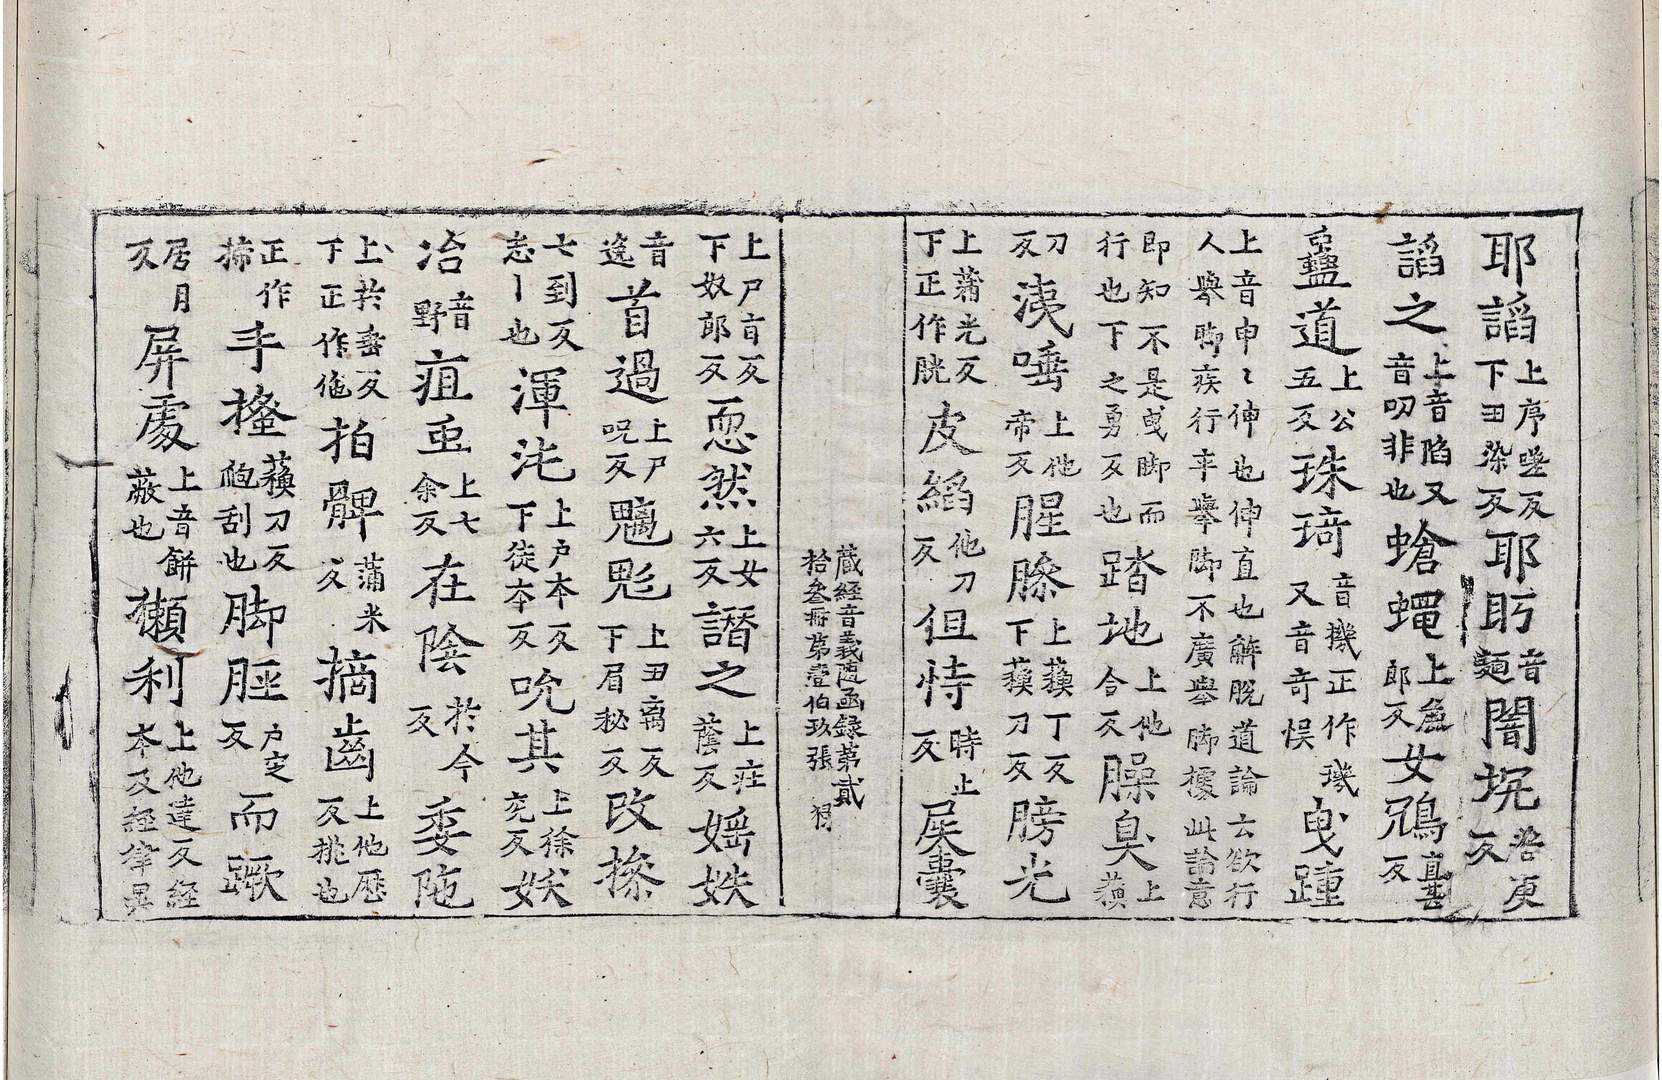 耶謟上序嗟反下丑染反耶眄音麵闇㘬洽更反
謟之上音陷又音叨非也蟾蠅上倉郎反女鴉
蠱道上公五反珠琦音機正作璣又音奇悞曳踵
上音申申伸也伸直也解脫道論云欲行人舉脚疾行牽舉脚不廣舉脚據此論意
即知不是曳脚而行也下之勇反也踏地上他合反臊臭上蘓
刀反洟唾上他帝反腥臊上蘓丁反下蘓刀反膀光
上蒲光反下正作胱皮縚他刀反但恃時止反屎囊
蔵經音義随函録第貳拾叁冊第壹伯玖張
上尸盲反下奴郎反恧然上女六反譖之上庄蔭反婬妷
音逸首過上尸呪反魑魅上丑离反下眉秘反改操
七到反志丨也渾沌上户本反下徒本反吮其上徐兖反妖
冶音野疽虫上七余反在陰於今反委陁
上於垂反下正作惰拍髀蒲米反擿齒上他歷反挑也
正作掃手搔蘓刀反刮也脚脛户定反而蹶
居月反屏處上音餅蔽也獺利上他達反経